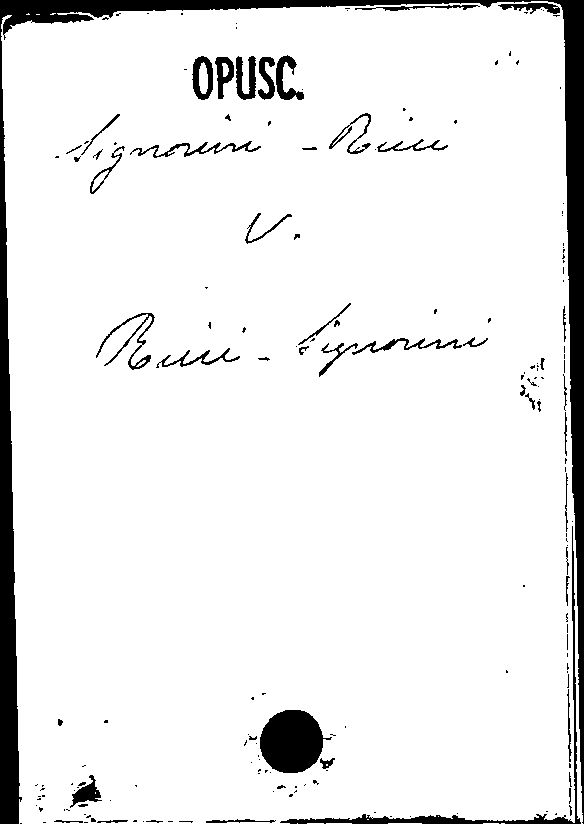 OPUSC.
Signorini - Ricci
V.
Ricci - Signorini